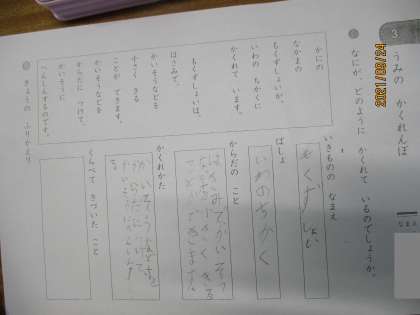 3
うみの かくれんぼ
なまえ
なにが、どのように かくれて いるのでしょうか。
かにの
なかまの
もくずしょいが、
いわの ちかくに
かくれて います。
もくずしょいは、
はさみで、
かいそうなどを
小さく きる
ことが できます。
かいそうなどを
からだに つけて、
かいそうに
へんしんするのです。
いきものの なまえ
もくずしょい
ばしょ
いわのちかく
からだの こと
はさみでかいそう
などを小さくきる
ことができます。
かくれかた
かいそうなどを
からだにつけて
かいそうにへんしんする
くらべて きづいた こと
きょうの ふりかえり
2021/09/24